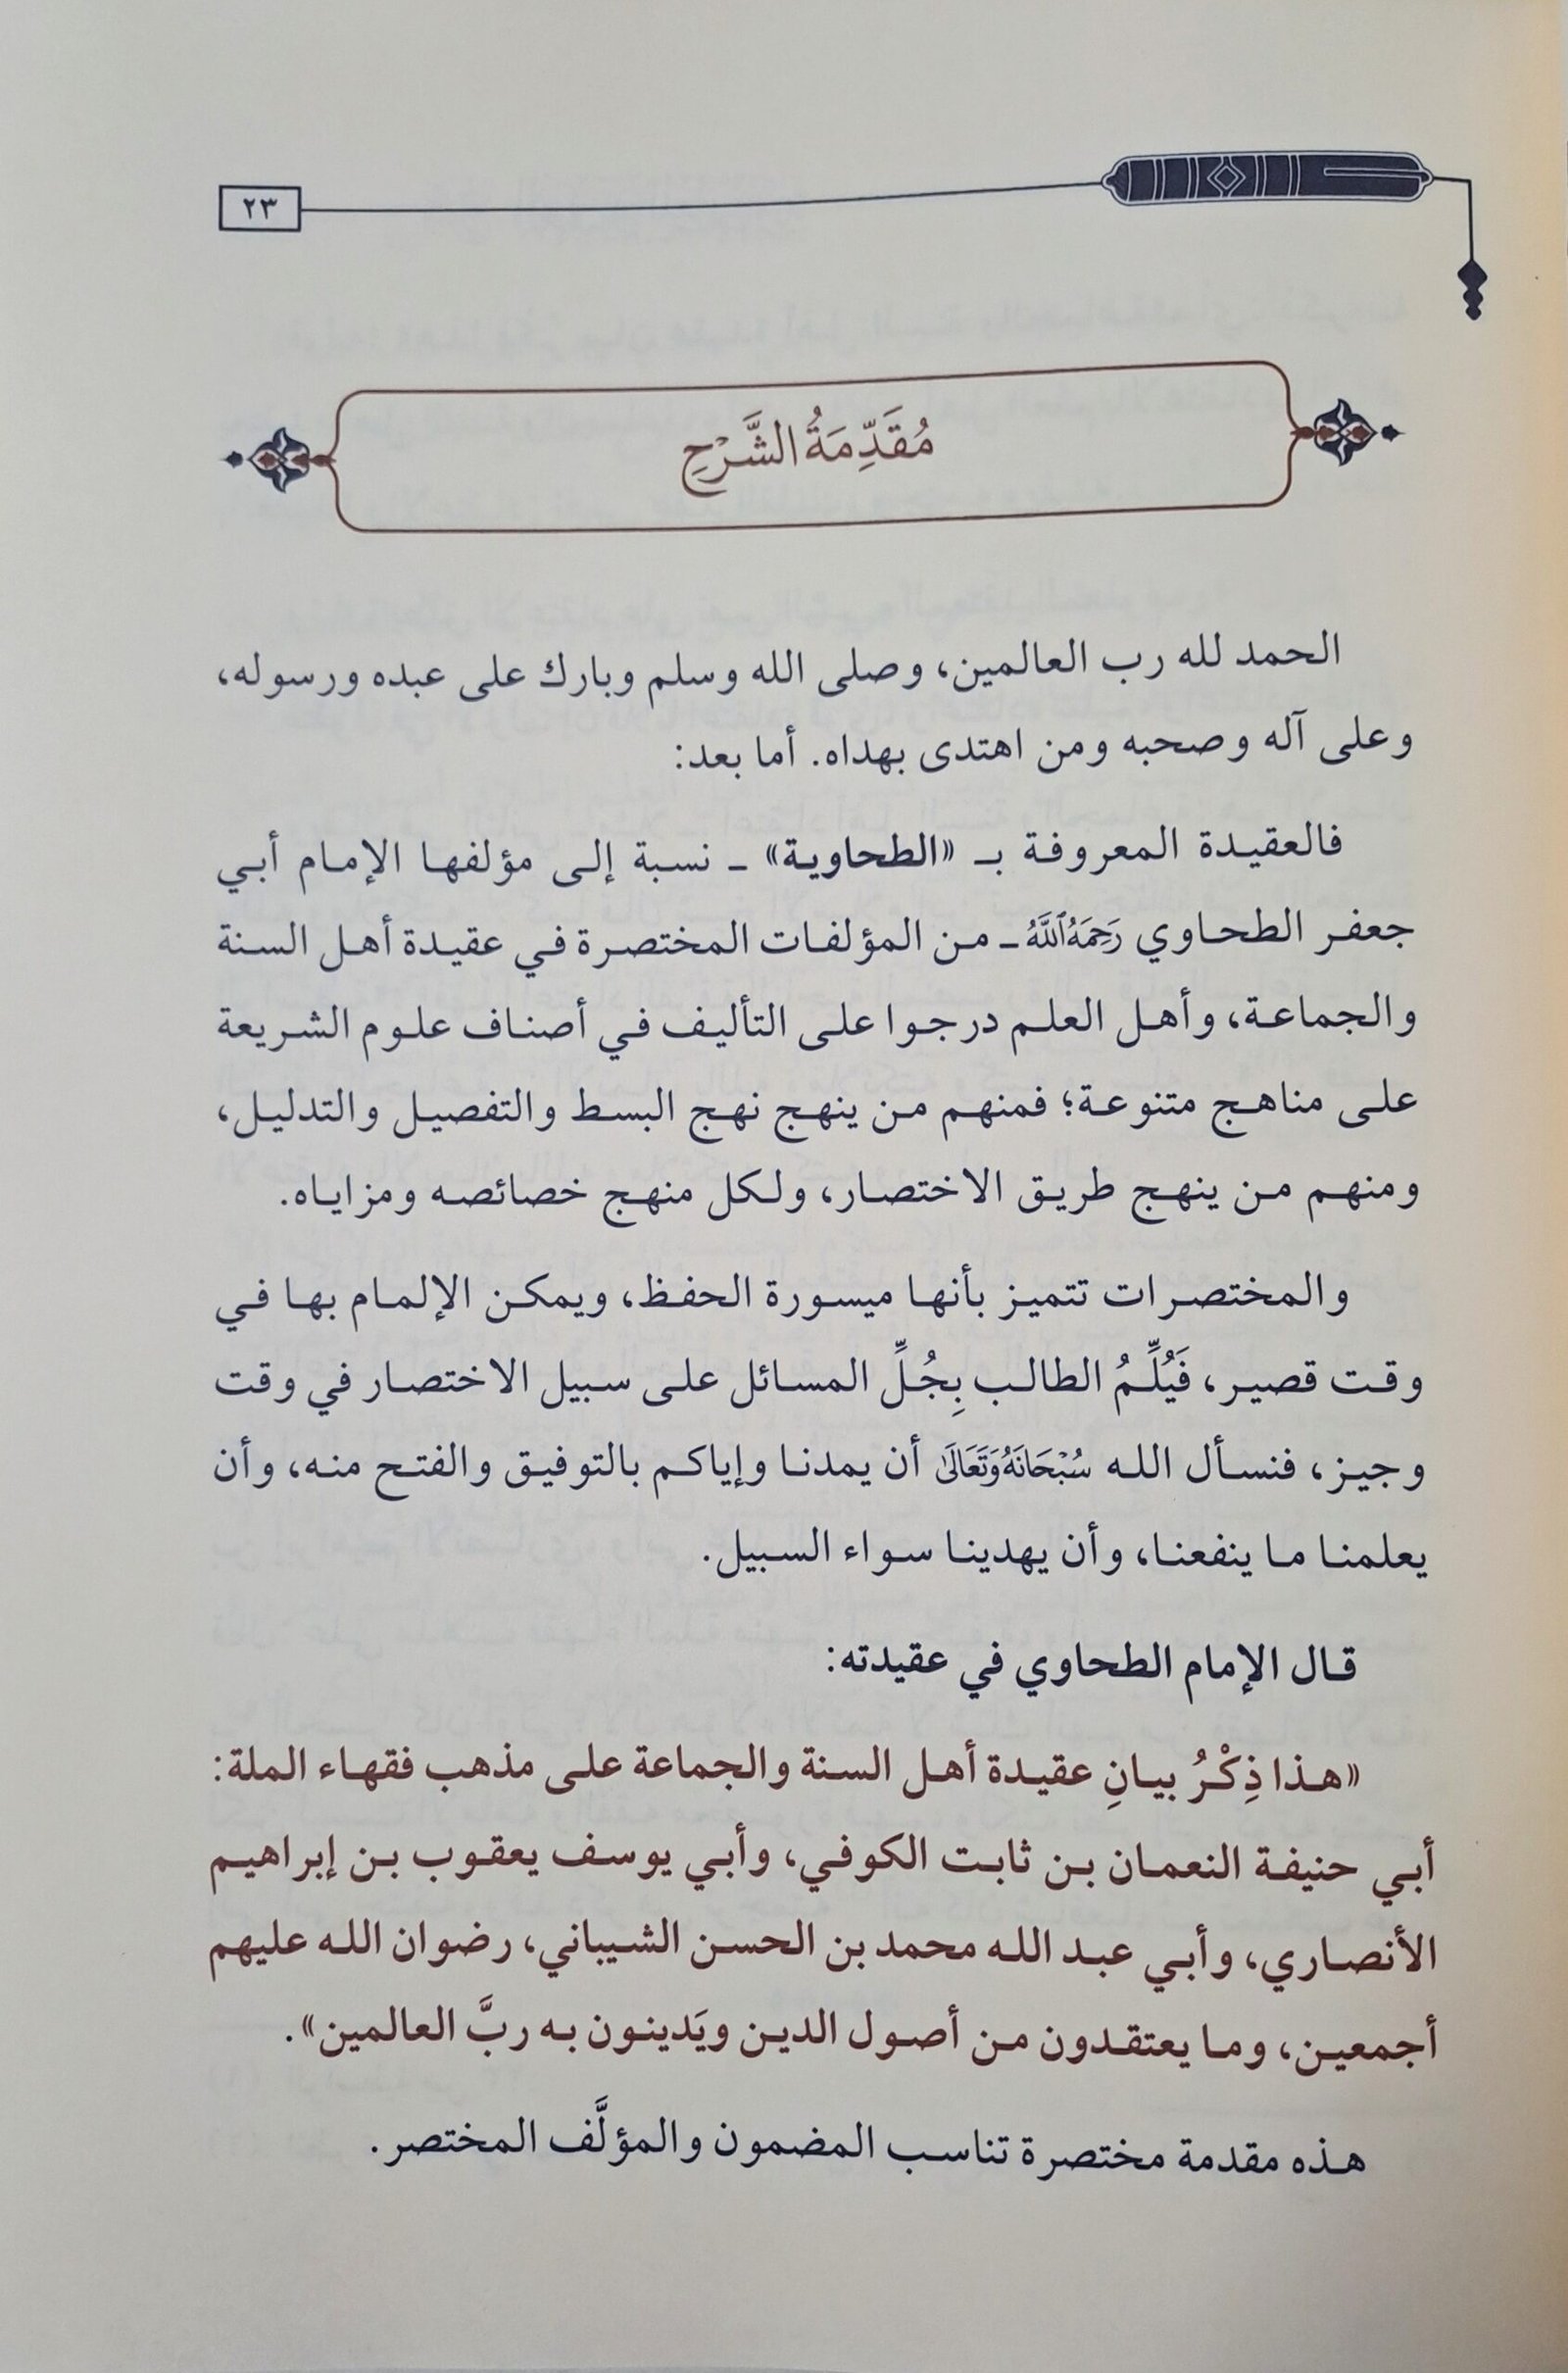 ٢٣
مُقَدِّمَةُ الشَّرْحِ
الحمد لله رب العالمين، وصلى الله وسلم وبارك على عبده ورسوله،
وعلى آله وصحبه ومن اهتدى بهداه. أما بعد:
فالعقيدة المعروفة بـ «الطحاوية» ـ نسبة إلى مؤلفها الإمام أبي
جعفر الطحاوي رَحِمَهُ ٱللَّهُ ـ من المؤلفات المختصرة في عقيدة أهل السنة
والجماعة، وأهل العلم درجوا على التأليف في أصناف علوم الشريعة
على مناهج متنوعة؛ فمنهم من ينهج نهج البسط والتفصيل والتدليل،
ومنهم من ينهج طريق الاختصار، ولكل منهج خصائصه ومزاياه.
والمختصرات تتميز بأنها ميسورة الحفظ، ويمكن الإلمام بها في
وقت قصير، فَيُلِّمُ الطالب بِجُلِّ المسائل على سبيل الاختصار في وقت
وجيز، فنسأل الله سُبْحَانَهُ وَتَعَالَىٰ أن يمدنا وإياكم بالتوفيق والفتح منه، وأن
يعلمنا ما ينفعنا، وأن يهدينا سواء السبيل.
قال الإمام الطحاوي في عقيدته:
«هذا ذِكْرُ بيانِ عقيدة أهل السنة والجماعة على مذهب فقهاء الملة:
أبي حنيفة النعمان بن ثابت الكوفي، وأبي يوسف يعقوب بن إبراهيم
الأنصاري، وأبي عبد الله محمد بن الحسن الشيباني، رضوان الله عليهم
أجمعين، وما يعتقدون من أصول الدين ويَدينون به ربَّ العالمين».
هذه مقدمة مختصرة تناسب المضمون والمؤلَّف المختصر.